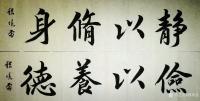 静以脩身
儉以養德